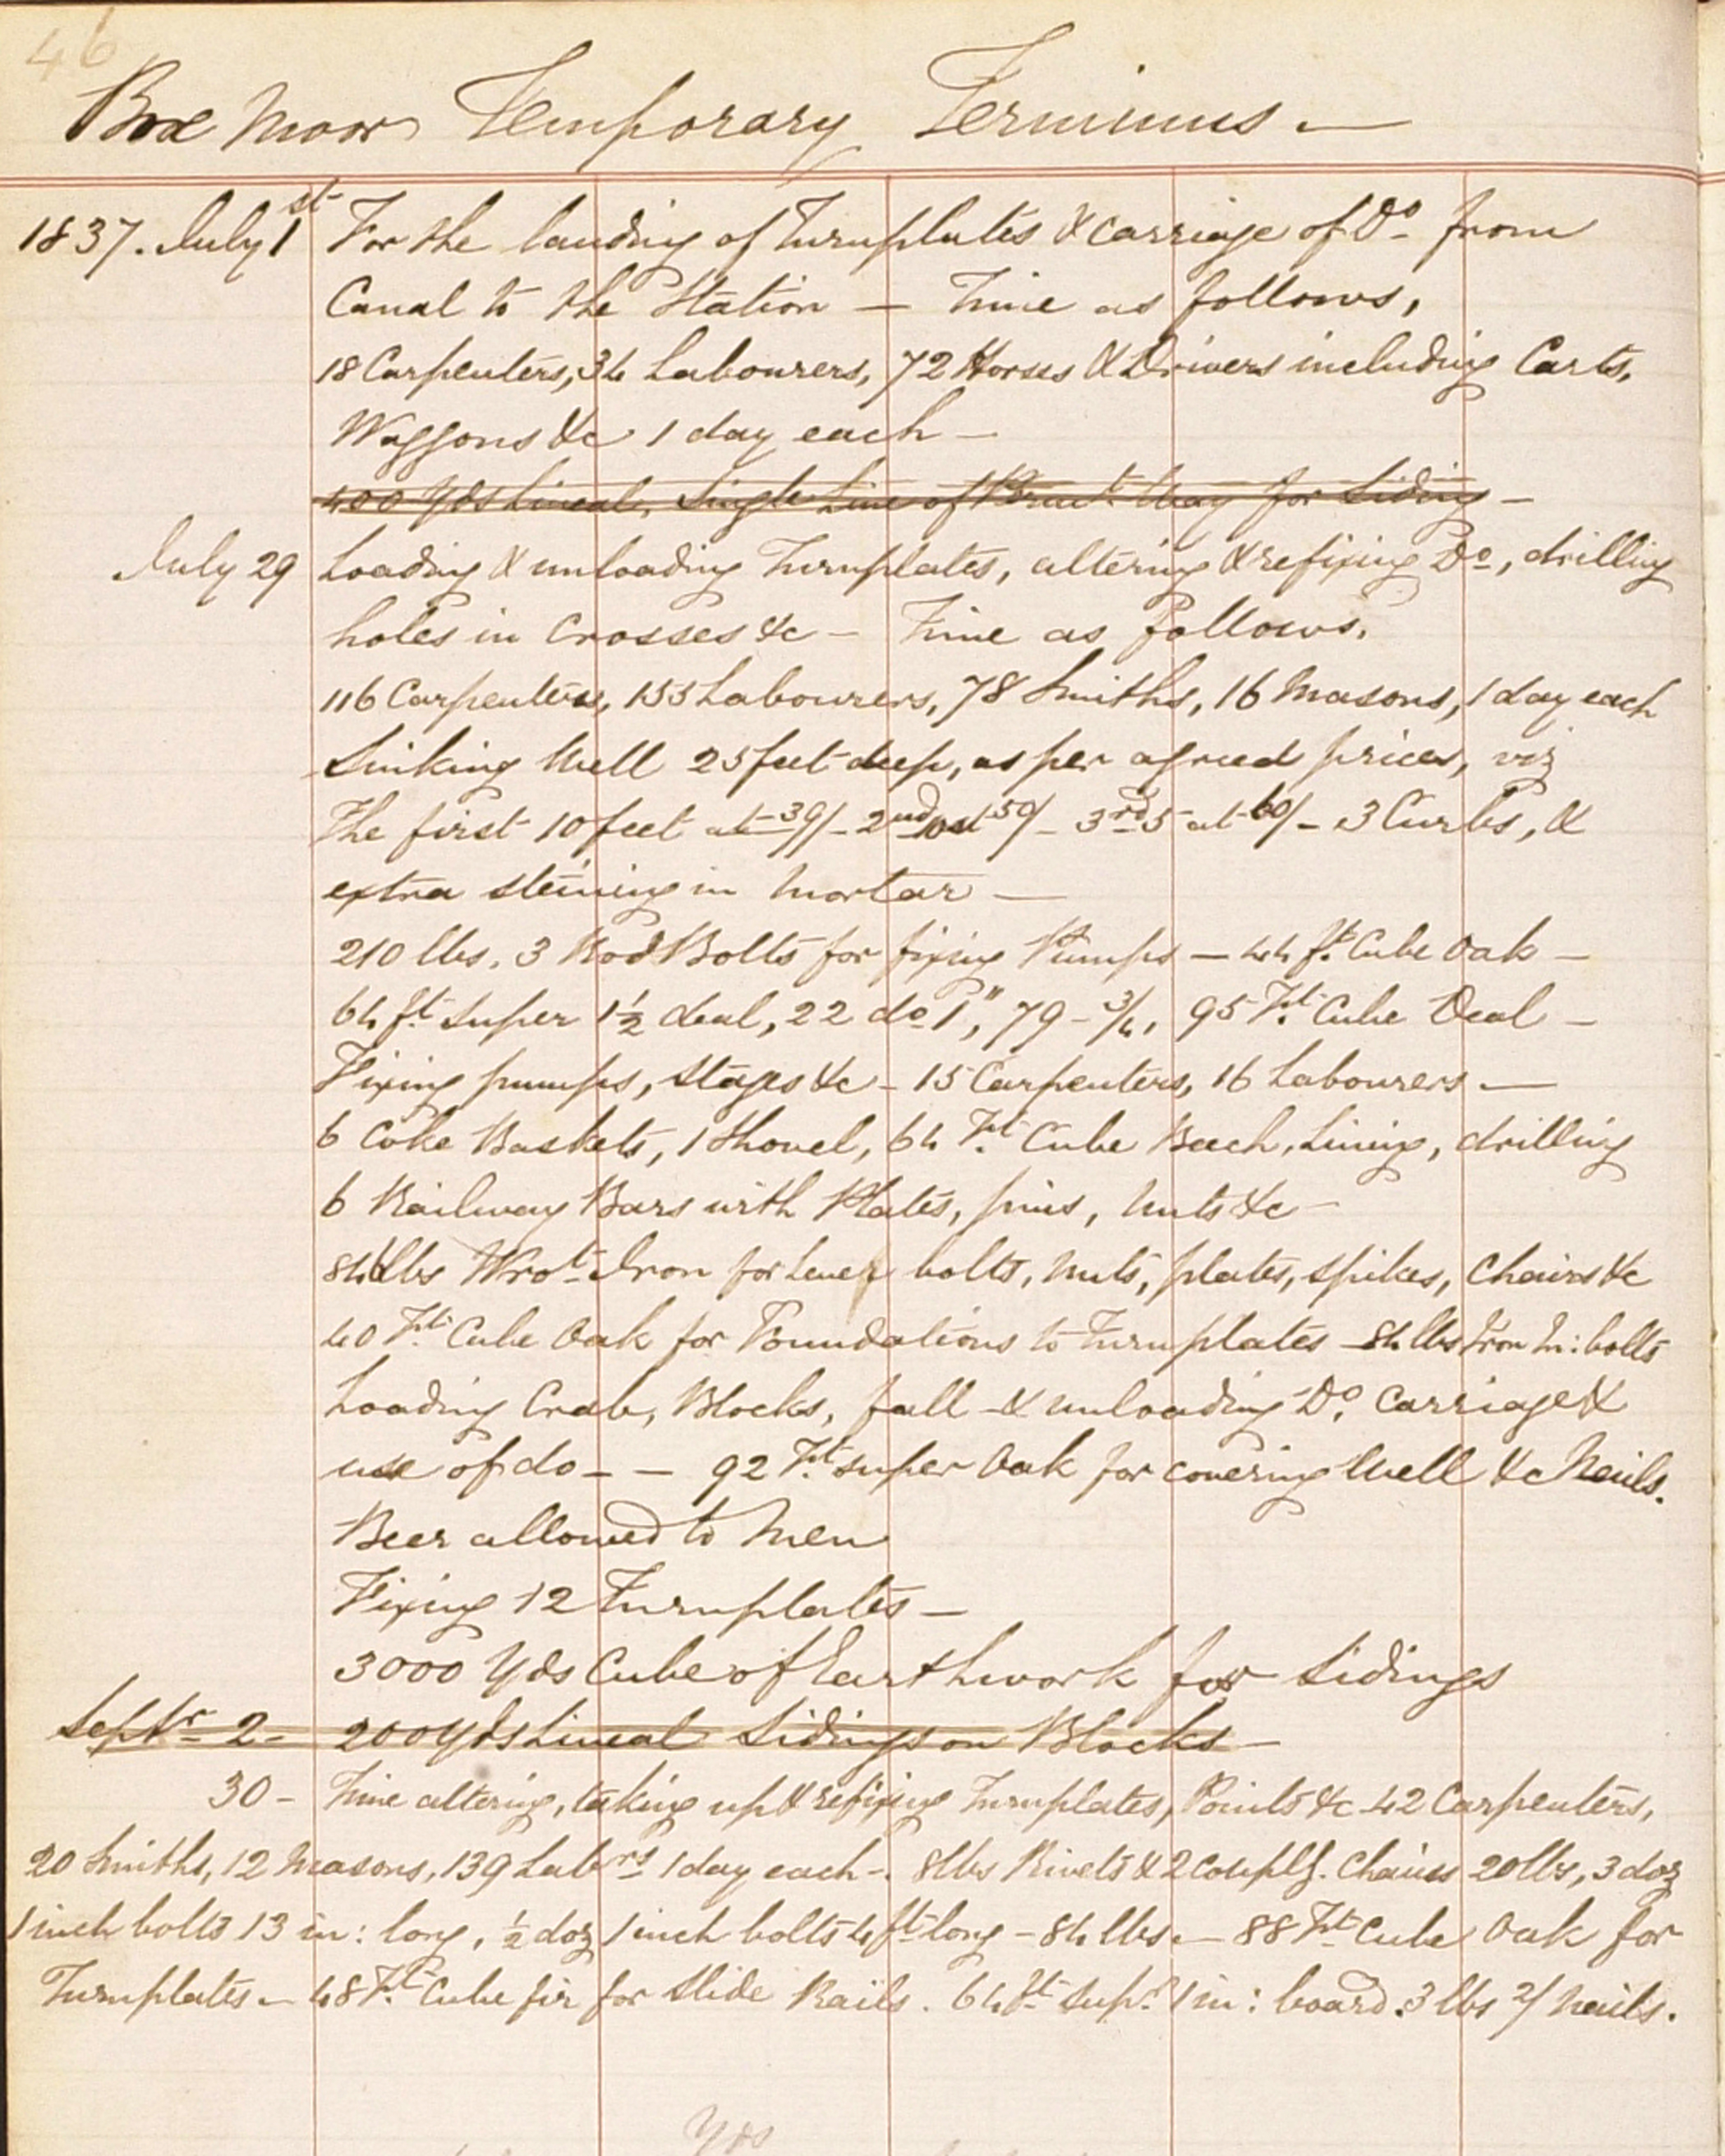 46
Box Moor Temporary Terminus —
1837. July 1st For the landing of Turnplates & carriage of Do. from
Canal to the Station — Time as follows,
18 Carpenters, 34 Labourers, 72 Horses & Drivers including Carts,
Waggons &c 1 day each —
400 Yds Lineal, Single Line of Permt. Way for Siding —
July 29 Loading & unloading Turnplates, altering & refixing Do, drilling
holes in Crosses &c — Time as follows.
116 Carpenters, 155 Labourers, 78 Smiths, 16 Masons, 1 day each
Sinking Well 25 feet deep, as per agreed prices, viz
The first 10 feet at 39/- 2nd 10 at 50/- 3rd 5 at 60/- 3 Curbs, &
extra steining in Mortar —
210 lbs. 3 Rod Bolts for fixing Pumps — 44 ft. Cube Oak —
64 ft. super 1½ deal, 22 do 1", 79 - 3/4, 95 Ft. Cube Deal —
Fixing pumps, stages &c — 15 Carpenters, 16 Labourers —
6 Coke Baskets, 1 Shovel, 64 Ft. Cube Beech, Lining, drilling
6 Railway Bars with Plates, pins, Nuts &c —
84 lbs Wrot. Iron for Lever bolts, nuts, plates, spikes, Chairs &c
40 Ft. Cube Oak for Foundations to Turnplates — 84 lbs Iron In: bolts
Loading Crab, Blocks, fall & unloading Do. Carriage &
use of do — — 92 Ft. super Oak for covering Well &c Nails.
Beer allowed to Men
Fixing 12 Turnplates —
3000 Yds Cube of Earthwork for Sidings
Septr 2 — 200 Yds Lineal Sidings on Blocks —
30 — Time altering, taking up & refixing Turnplates, Points &c 42 Carpenters,
20 Smiths, 12 Masons, 139 Labrs 1 day each —. 8 lbs Rivets & 2 Couplg. Chains 20 lbs, 3 doz
1 inch bolts 13 in: long, ½ doz 1 inch bolts 4 ft long — 84 lbs — 88 Ft. Cube Oak for
Turnplates — 48 Ft. Cube fir for Slide Rails. 64 ft. supr. 1 in: board. 3 lbs 2/ Nails.
Yds